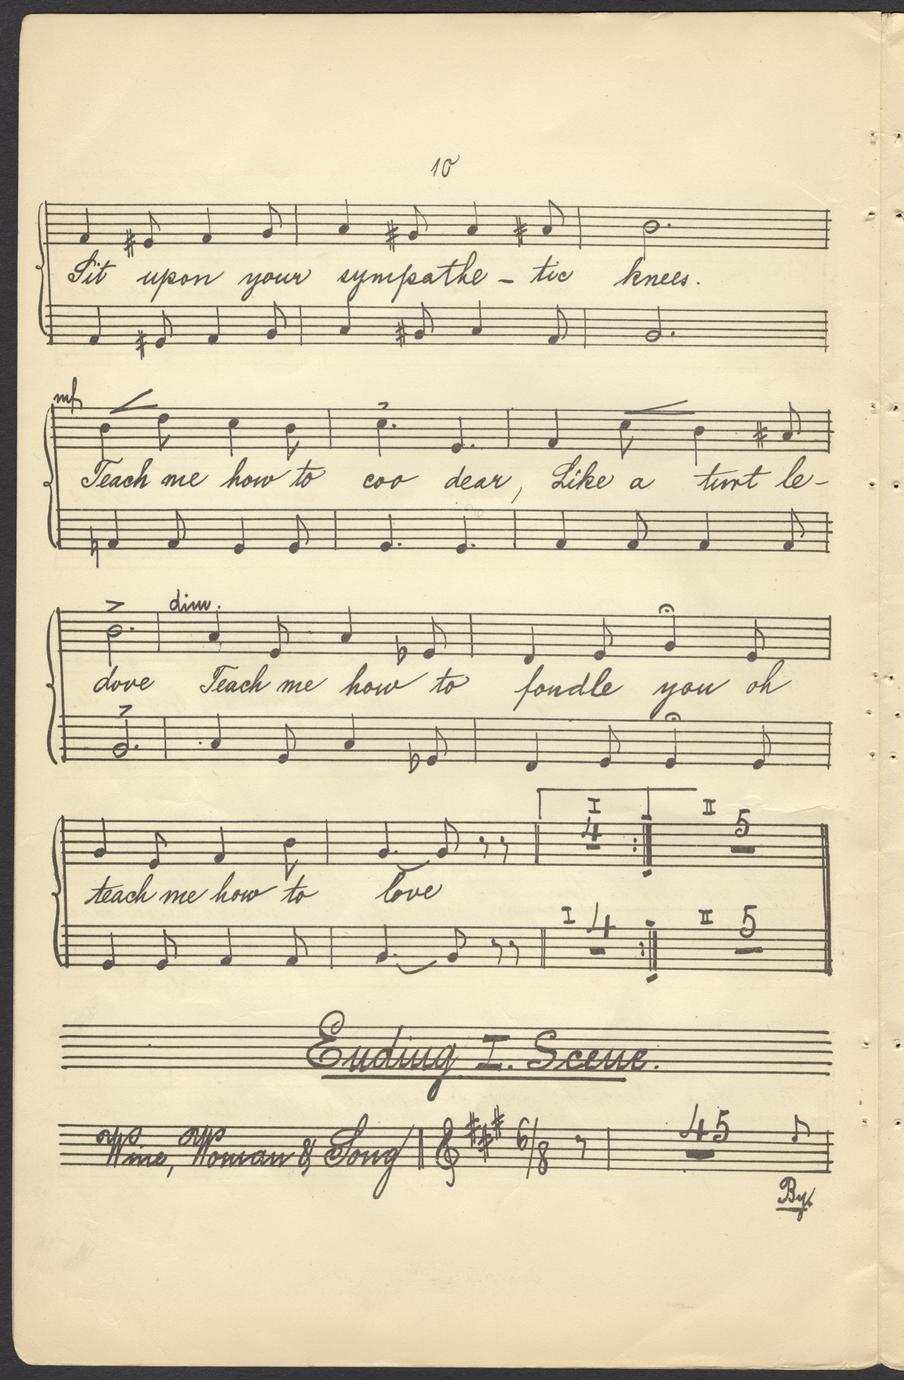 10
Sit upon your sympathe - tic knees.
mf
Teach me how to coo dear, Like a turt le-
dim.
dove Teach me how to fondle you oh
I 4 II 5
teach me how to love
I 4 II 5
Ending I. Scene.
Wine, Woman & Song 6/8 45
By